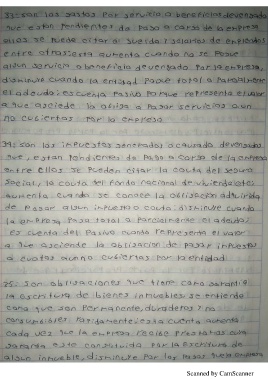 33: son los gastos por servicio o beneficio devengado
que estan pendientes de pago a cargo de la empresa
ellos se puede citar a: sueldos y salarios de empleados
entre otras esta aumenta cuando no se pague
algun servicio o beneficio devengado por la empresa,
disminuye cuando la entidad pague total o parcialmente
el adeudo; es cuenta pasivo porque representa el valor
a que asciende la obliga a pagar servicios aun
no cubiertos por la empresa
34: son los impuestos generados o causado devengados
que, estan pendientes de pago a cargo de la empresa
entre ellos se pueden citar la cuota del seguro
social, la cuota del fondo nacional de vivienda, etc
aumenta cuando se conoce la obligacion adquirida
de pagar algun impuesto o cuota disminuye cuando
la empresa paga total o parcialmente el adeudo
es cuenta del pasivo cuando representa el valor
a que asciende la obligacion de pagar impuestos
o cuotas aun no cubiertos por la entidad
35: son obligaciones que tiene como garantia
la escritura de bienes inmuebles se entiende
como que son permanente, duraderos y no
consumibles rapidamente; esta cuenta aumenta
cada vez que la empresa recibe prestamos cuya
garantia este constituida por la escritura de
algun inmueble, disminuye por los pagos que la empresa
Scanned by CamScanner